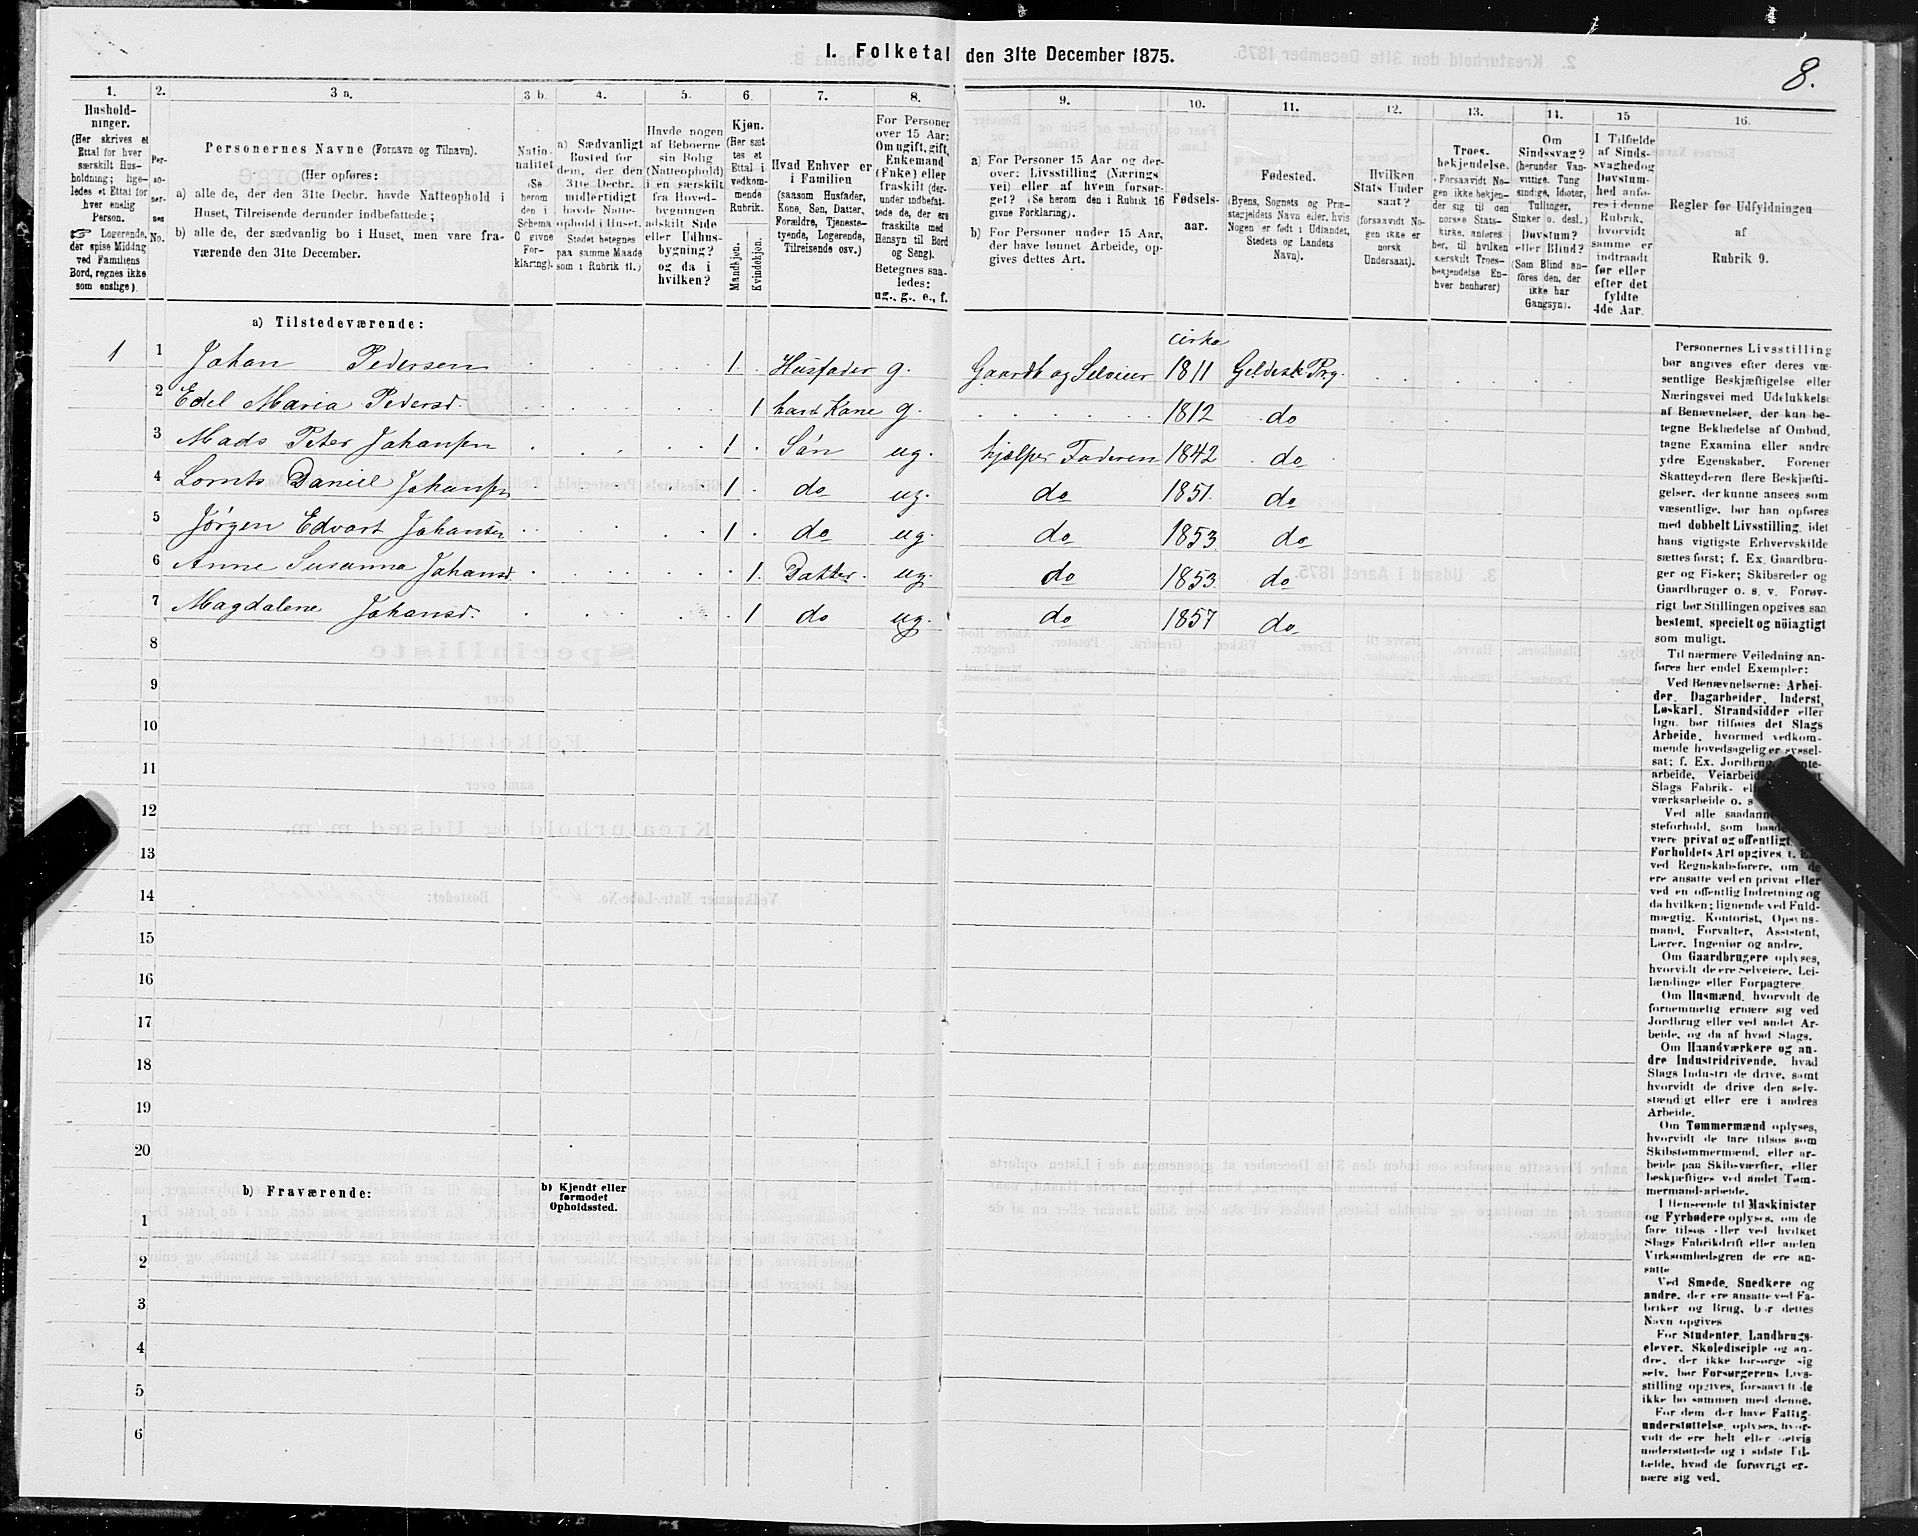 I. Folketal den 31te December 1875.
8.
1. 2. 3 a. 3 b. 4. 5. 6. 7. 8. 9. 10. 11. 12. 13. 14. 15 16.
Hushold-
ninger.
(Her skrives et
Ettal for hver
særskilt Hus-
holdning; lige-
ledes et Ettal for
hver enslig
Person.
☞ Logerende,
der spise Middag
ved Familiens
Bord, regnes ikke
som enslige).
Per-
so-
ner-
nes
No.
Personernes Navne (Fornavn og Tilnavn).
(Her opføres:
a) alle de, der den 31te Decbr. havde Natteophold i
Huset, Tilreisende derunder indbefattede;
b) alle de, der sædvanlig bo i Huset, men vare fra-
værende den 31te December.
Natio-
nalitet
(Se
herom
den i
Schema
C givne
For-
klaring).
a) Sædvanligt
Bosted for
dem, der den
31te Decbr.
midlertidigt
havde Natte-
ophold i Huset.
Stedet betegnes
paa samme Maade
som i Rubrik 11.)
Havde nogen
af Beboerne
sin Bolig
(Natteophold)
i en særskilt
fra Hoved-
bygningen
adskilt Side
eller Udhus-
bygning?
og da i
hvilken?
Kjøn.
(Her sæt
tes et
Ettal i
vedkom-
mende
Rubrik.
Mandkjøn.
Kvindekjøn.
Hvad Enhver er
i Familien
(saasom Husfader,
Kone, Søn, Datter,
Forældre, Tjeneste-
tyende, Logerende,
Tilreisende osv.)
For Personer
over 15 Aar:
Om ugift, gift,
Enkemand
(Enke) eller
fraskilt (der-
under indbefat-
tede de, der ere
fraskilte med
Hensyn til Bord
og Seng).
Betegnes saa-
ledes:
ug., g., e., f.
a) For Personer 15 Aar og der-
over: Livsstilling (Nærings
vei) eller af hvem forsør-
get? (Se herom den i Rubrik 16
givne Forklaring).
b) For Personer under 15 Aar,
der have lønnet Arbeide, op-
gives dettes Art.
Fødsels-
aar.
Fødested.
(Byens, Sognets og Præ-
stegjeldets Navn eller, hvis
Nogen er født i Udlandet,
Stedets og Landets
Navn).
Hvilken
Stats Under
saat?
(forsaavidt No-
gen ikke er
norsk
Undersaat).
Troes-
bekjendelse.
(Forsaavidt No-
gen ikke bekjen-
der sig til den
norske Stats-
kirke, anføres
her, til hvilken
særskilt Troes-
bekjendelse En-
hver henhører)
Om
Sindssvag?
(herunder Van-
vittige, Tung
sindige, Idioter,
Tullinger,
Sinker o. desl.)
Døvstum?
eller Blind?
(Som Blind an-
føres den, der
ikke har
Gangsyn).
I Tilfælde
af Sinds-
svaghed og
Døvstum-
hed anfø-
res i denne
Rubrik,
hvorvidt
samme er
indtraadt
før eller
efter det
fyldte
4de Aar.
Regler for Udfyldningen
af
Rubrik 9.
a) Tilstedeværende:
cirka
1 1 Johan Pedersen 1 Husfader g. Gaardb og Selveier 1811 Geldesk Prg.
2 Edel Maria Pedersd. 1 hans Kone g. 1812 do
3 Mads Peter Johansen 1 Søn ug. hjælper Faderen 1842 do
4 Lornts Daniel Johansen 1 do ug. do 1851 do
5 Jørgen Edvart Johansen 1 do ug. do 1853 do
6 Anne Susanna Johansd. 1 Datter ug. do 1853 do
7 Magdalene Johansd. 1 do ug. do 1857 do
8
9
10
11
12
13
14
15
16
17
18
19
20
b) Fraværende:
b) Kjendt eller
formodet
Opholdssted.
1
2
3
4
5
6
Personernes Livsstilling
bør angives efter deres væ-
sentlige Beskjæftigelse eller
Næringsvei med Udelukkelse
af Benævnelser, der kun be-
tegne Beklædelse af Ombud,
tagne Examina eller andre
ydre Egenskaber. Forener
Skatteyderen flere Beskjæfti-
gelser, der kunne ansees som
væsentlige, bør han opføres
med dobbelt Livsstilling, idet
hans vigtigste Erhvervskilde
sættes først; f. Ex. Gaardbru-
ger og Fisker; Skibsreder og
Gaardbruger o. s. v. Forøv-
rigt bør Stillingen opgives saa
bestemt, specielt og nöiagtigt
som muligt.
Til nærmere Veiledning an-
føres her endel Exempler:
Ved Benævnelserne: Arbei-
der, Dagarbeider, Inderst,
Løskarl, Strandsidder eller
lign. bør tilføies det Slags
Arbeide, hvormed vedkom-
mende hovedsagelig er syssel-
sat; f. Ex. Jordbrug,
arbeide, Veiarbeide,
Slags Fabrik-
værksarbeide o. s
Ved alle saadanne
steforhold, som
være privat og offentligt,
Forholdets Art opgives,
ved Regnskabsførere, om de
ere ansatte ved en privat eller
ved en offentlig Indretning og
da hvilken; lignende ved Fuld-
mægtig, Kontorist, Opsyns-
mand, Forvalter, Assistent,
Lærer, Ingeniør og andre.
Om Gaardbrugere oplyses,
hvorvidt de ere Selveiere, Lei-
lændinge eller Forpagtere.
Om Husmænd, hvorvidt de
fornemmelig ernære sig ved
Jordbrug eller ved andet Ar-
beide, og da af hvad Slags.
Om Haandværkere og an-
dre Industridrivende, hvad
Slags Industri de drive, samt
hvorvidt de drive den selv-
stændigt eller ere i andres
Arbeide.
Om Tømmermænd oplyses,
hvorvidt de fare tilsøs som
Skibstømmermænd, eller ar-
beide paa Skibsværfter, eller
beskjæftiges ved andet Tøm-
mermandarbeide.
I Henseende til Maskinister
og Fyrbødere oplyses, om de
fare tilsøs eller ved hvilket
Slags Fabrikdrift eller anden
Virksomhedsgren de ere an-
satte
Ved Smede, Snedkere og
andre, der ere ansatte ved Fa-
briker og Brug, bør dettes
Navn opgives
For Studenter, Landbrugs-
elever, Skoledisciple og an-
dre, der ikke forsørge sig
selv, bør Forsørgerens Livs-
stilling opgives, forsaavidt de
ikke bo sammen med denne.
For dem der have Fattig-
understøttelse, oplyses, hvor-
vidt de ere helt eller delvis
understøttede og i sidste Til-
fælde, hvad de forøvrigt er-
nære sig ved.